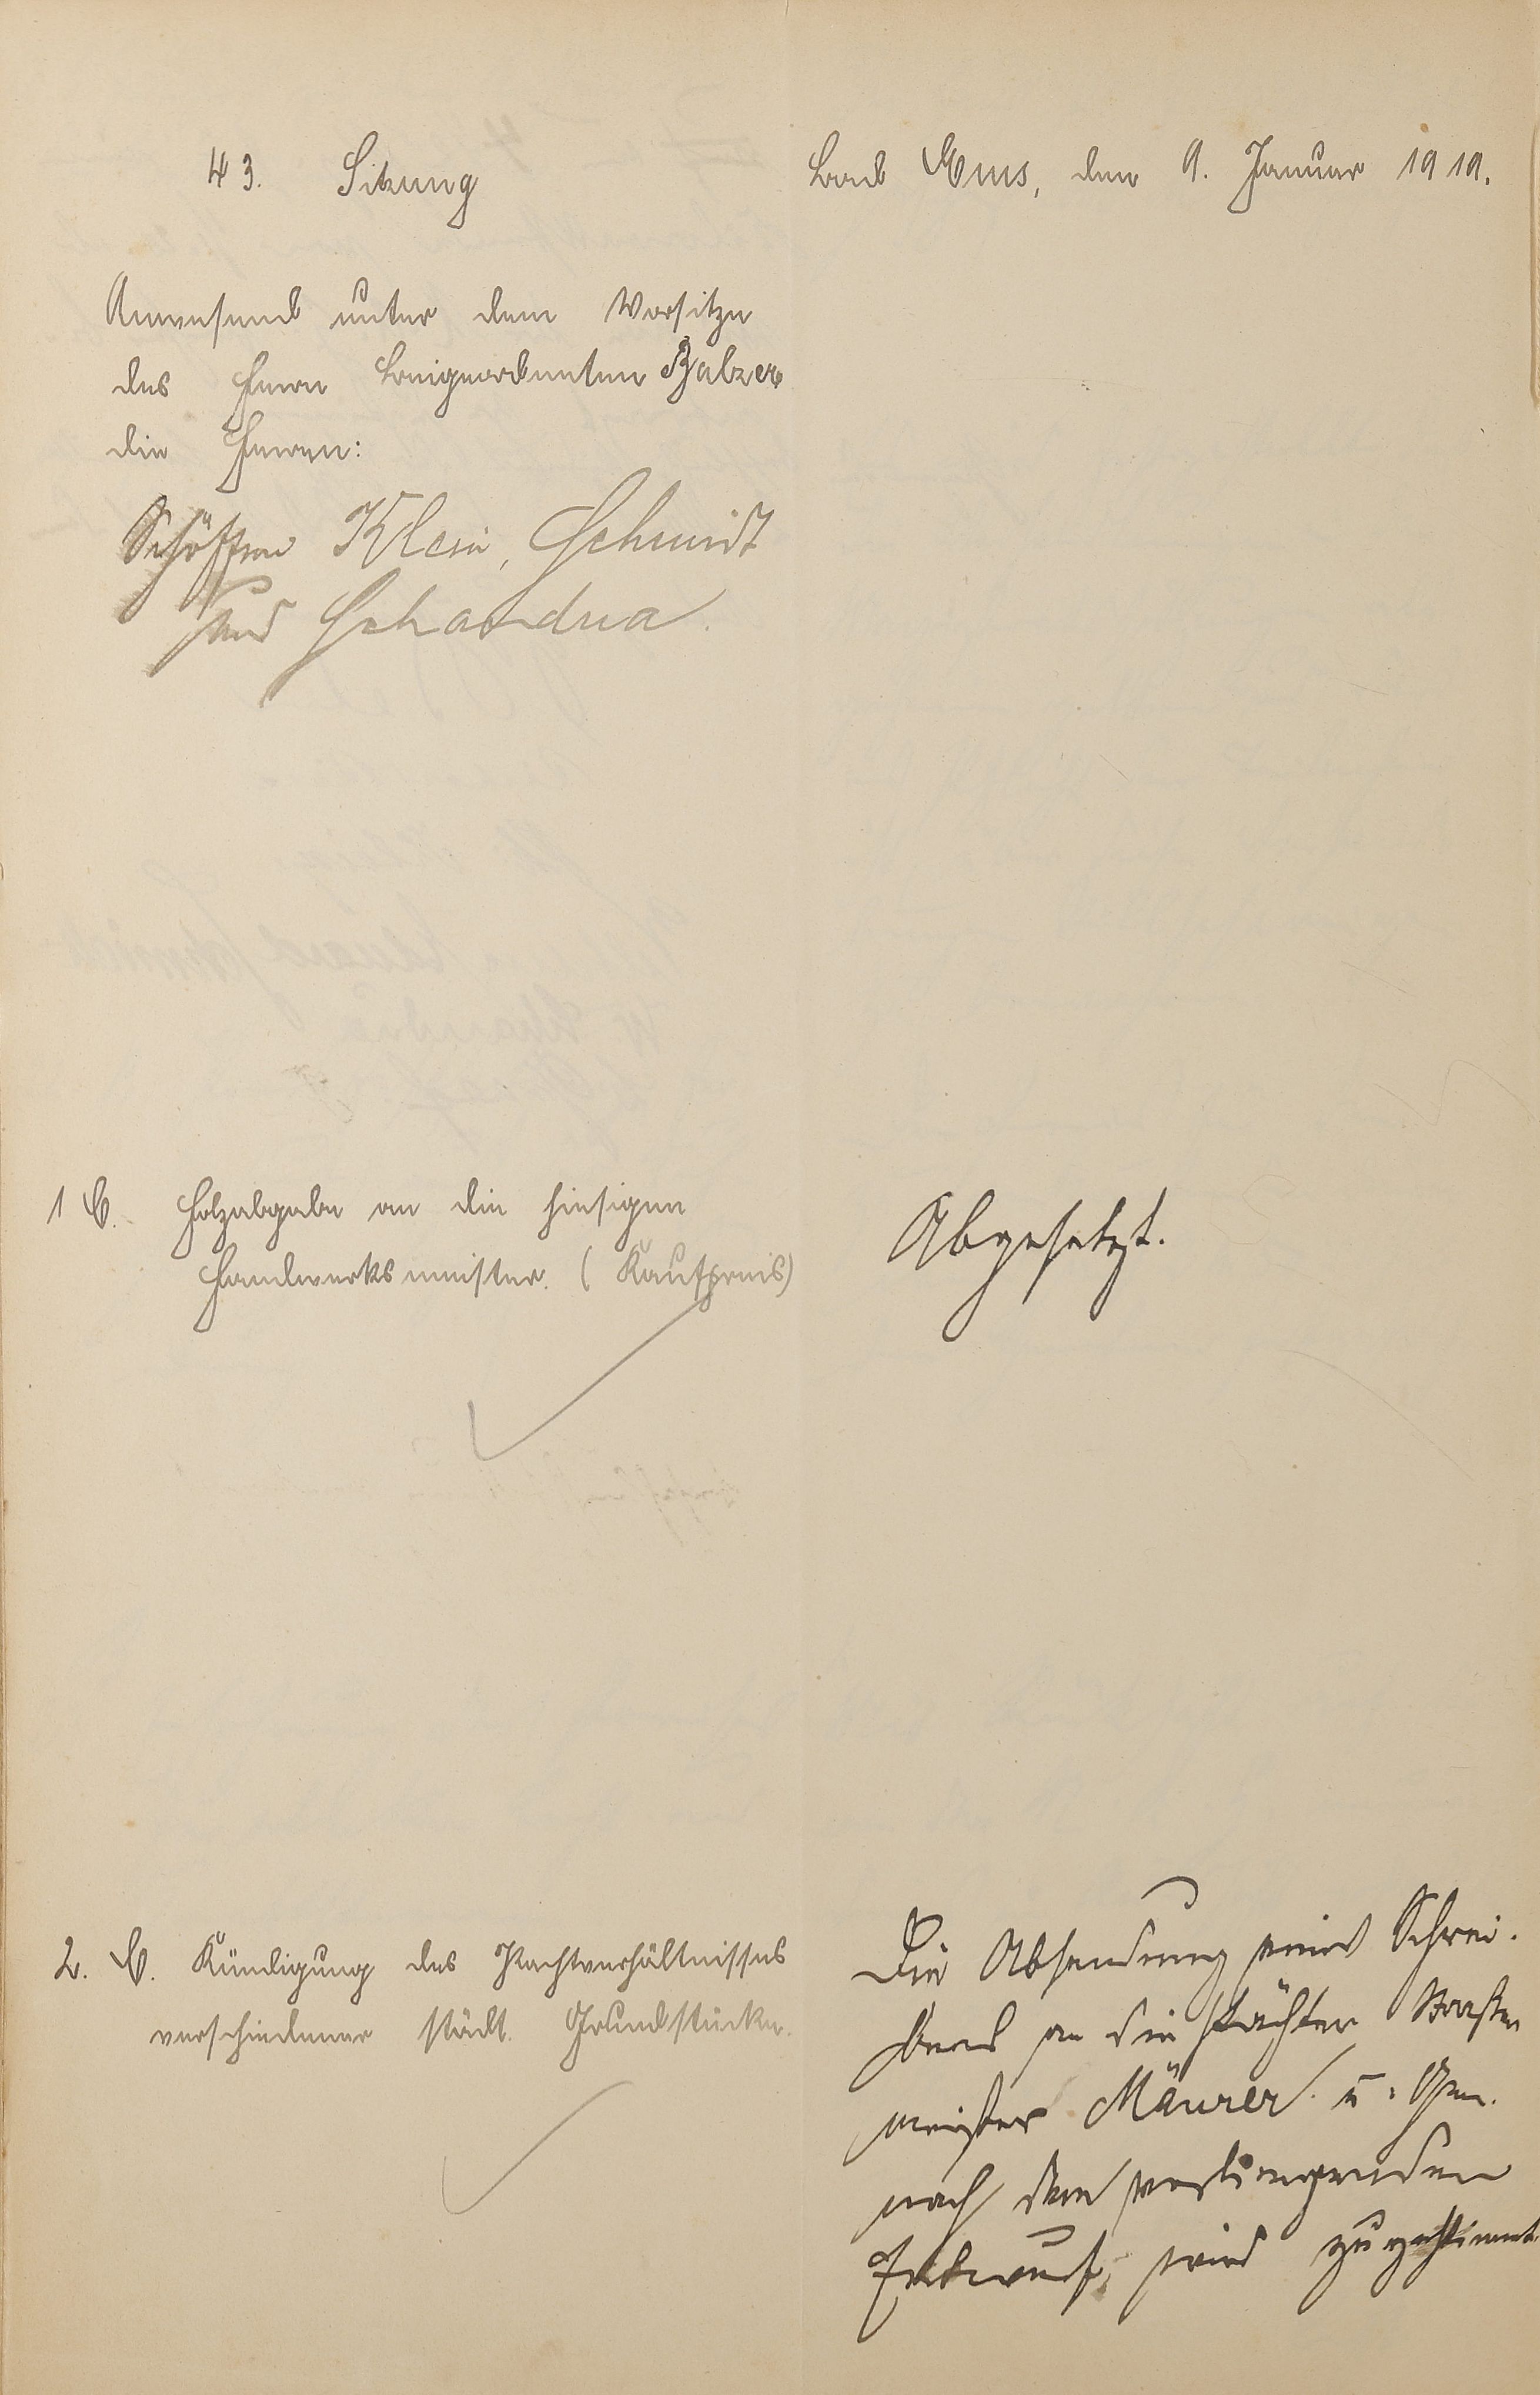 43. Sitzung
Bad Ems, den 9. Januar 1919.
Anwesend unter dem Vorsitze
des Herrn Beigeordneten Balzer
die Herren:
Schöffen Klein, Schmidt
und Schaudua.
1 C. Holzabgabe an die hiesigen
Handwerksmeister. (Kaufpreis)
Abgesetzt.
2. C. Kündigung des Pachtverhältnisses
verschiedener städt. Grundstücke.
Die Absendung eines Schrei-
bens an die Pächter Straßen
meister Mäurer u. Gen.
nach dem vorliegenden
Entwurf, wird zugestimmt.